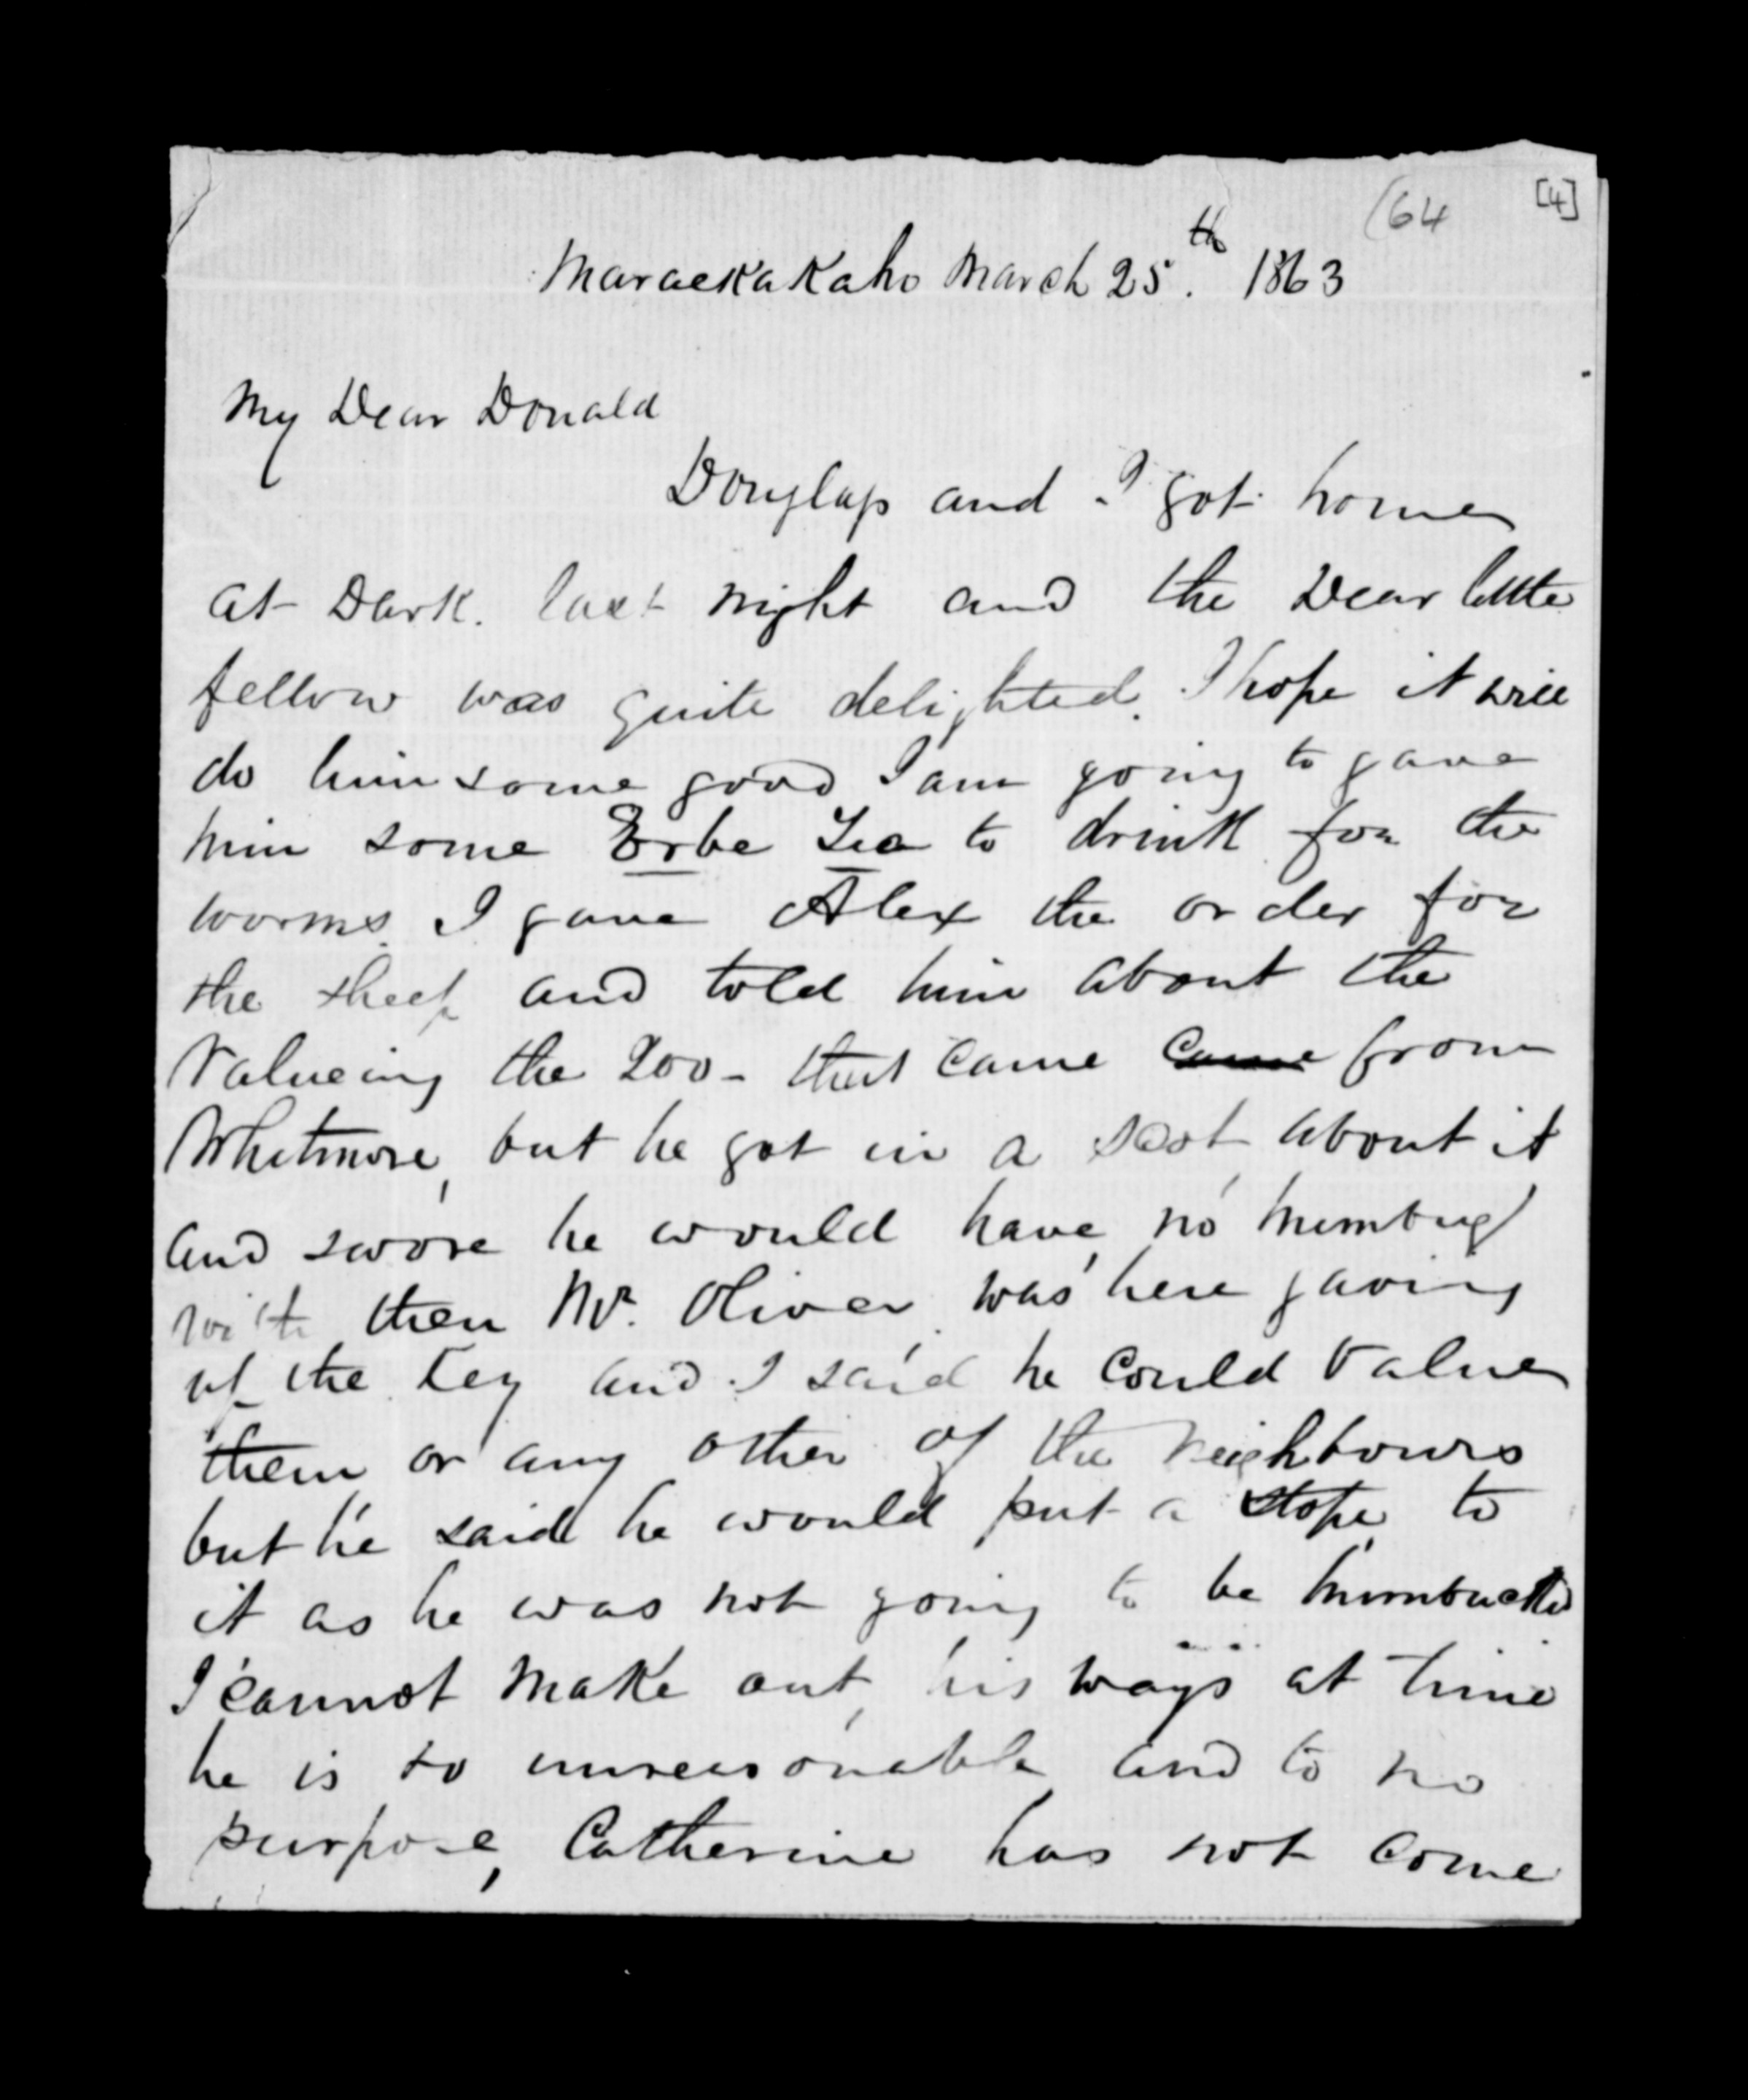 (64 [4]
Maraekakaho March 25th. 1863
My Dear Donald
Douglass and I got home
at Dark. last night and the Dear little
fellow was quite delighted. I hope it will
do him some good I am going to gave
him some Erbe Tea to drink for the
worms. I gave Alex the order for
the sheep and told him about the
Valueing the 200 - that came came from
Whitmore, but he got in a about it
and swore he would have no humbug
with then Mr. Oliver was here gaving
up the Key and I said he could Value
them or any other of the Neighbours
but he said he would put a stope to
it as he was not going to be
I cannot make out his ways at time
he is so unreasonable and to no
purpose, Catherine has not come